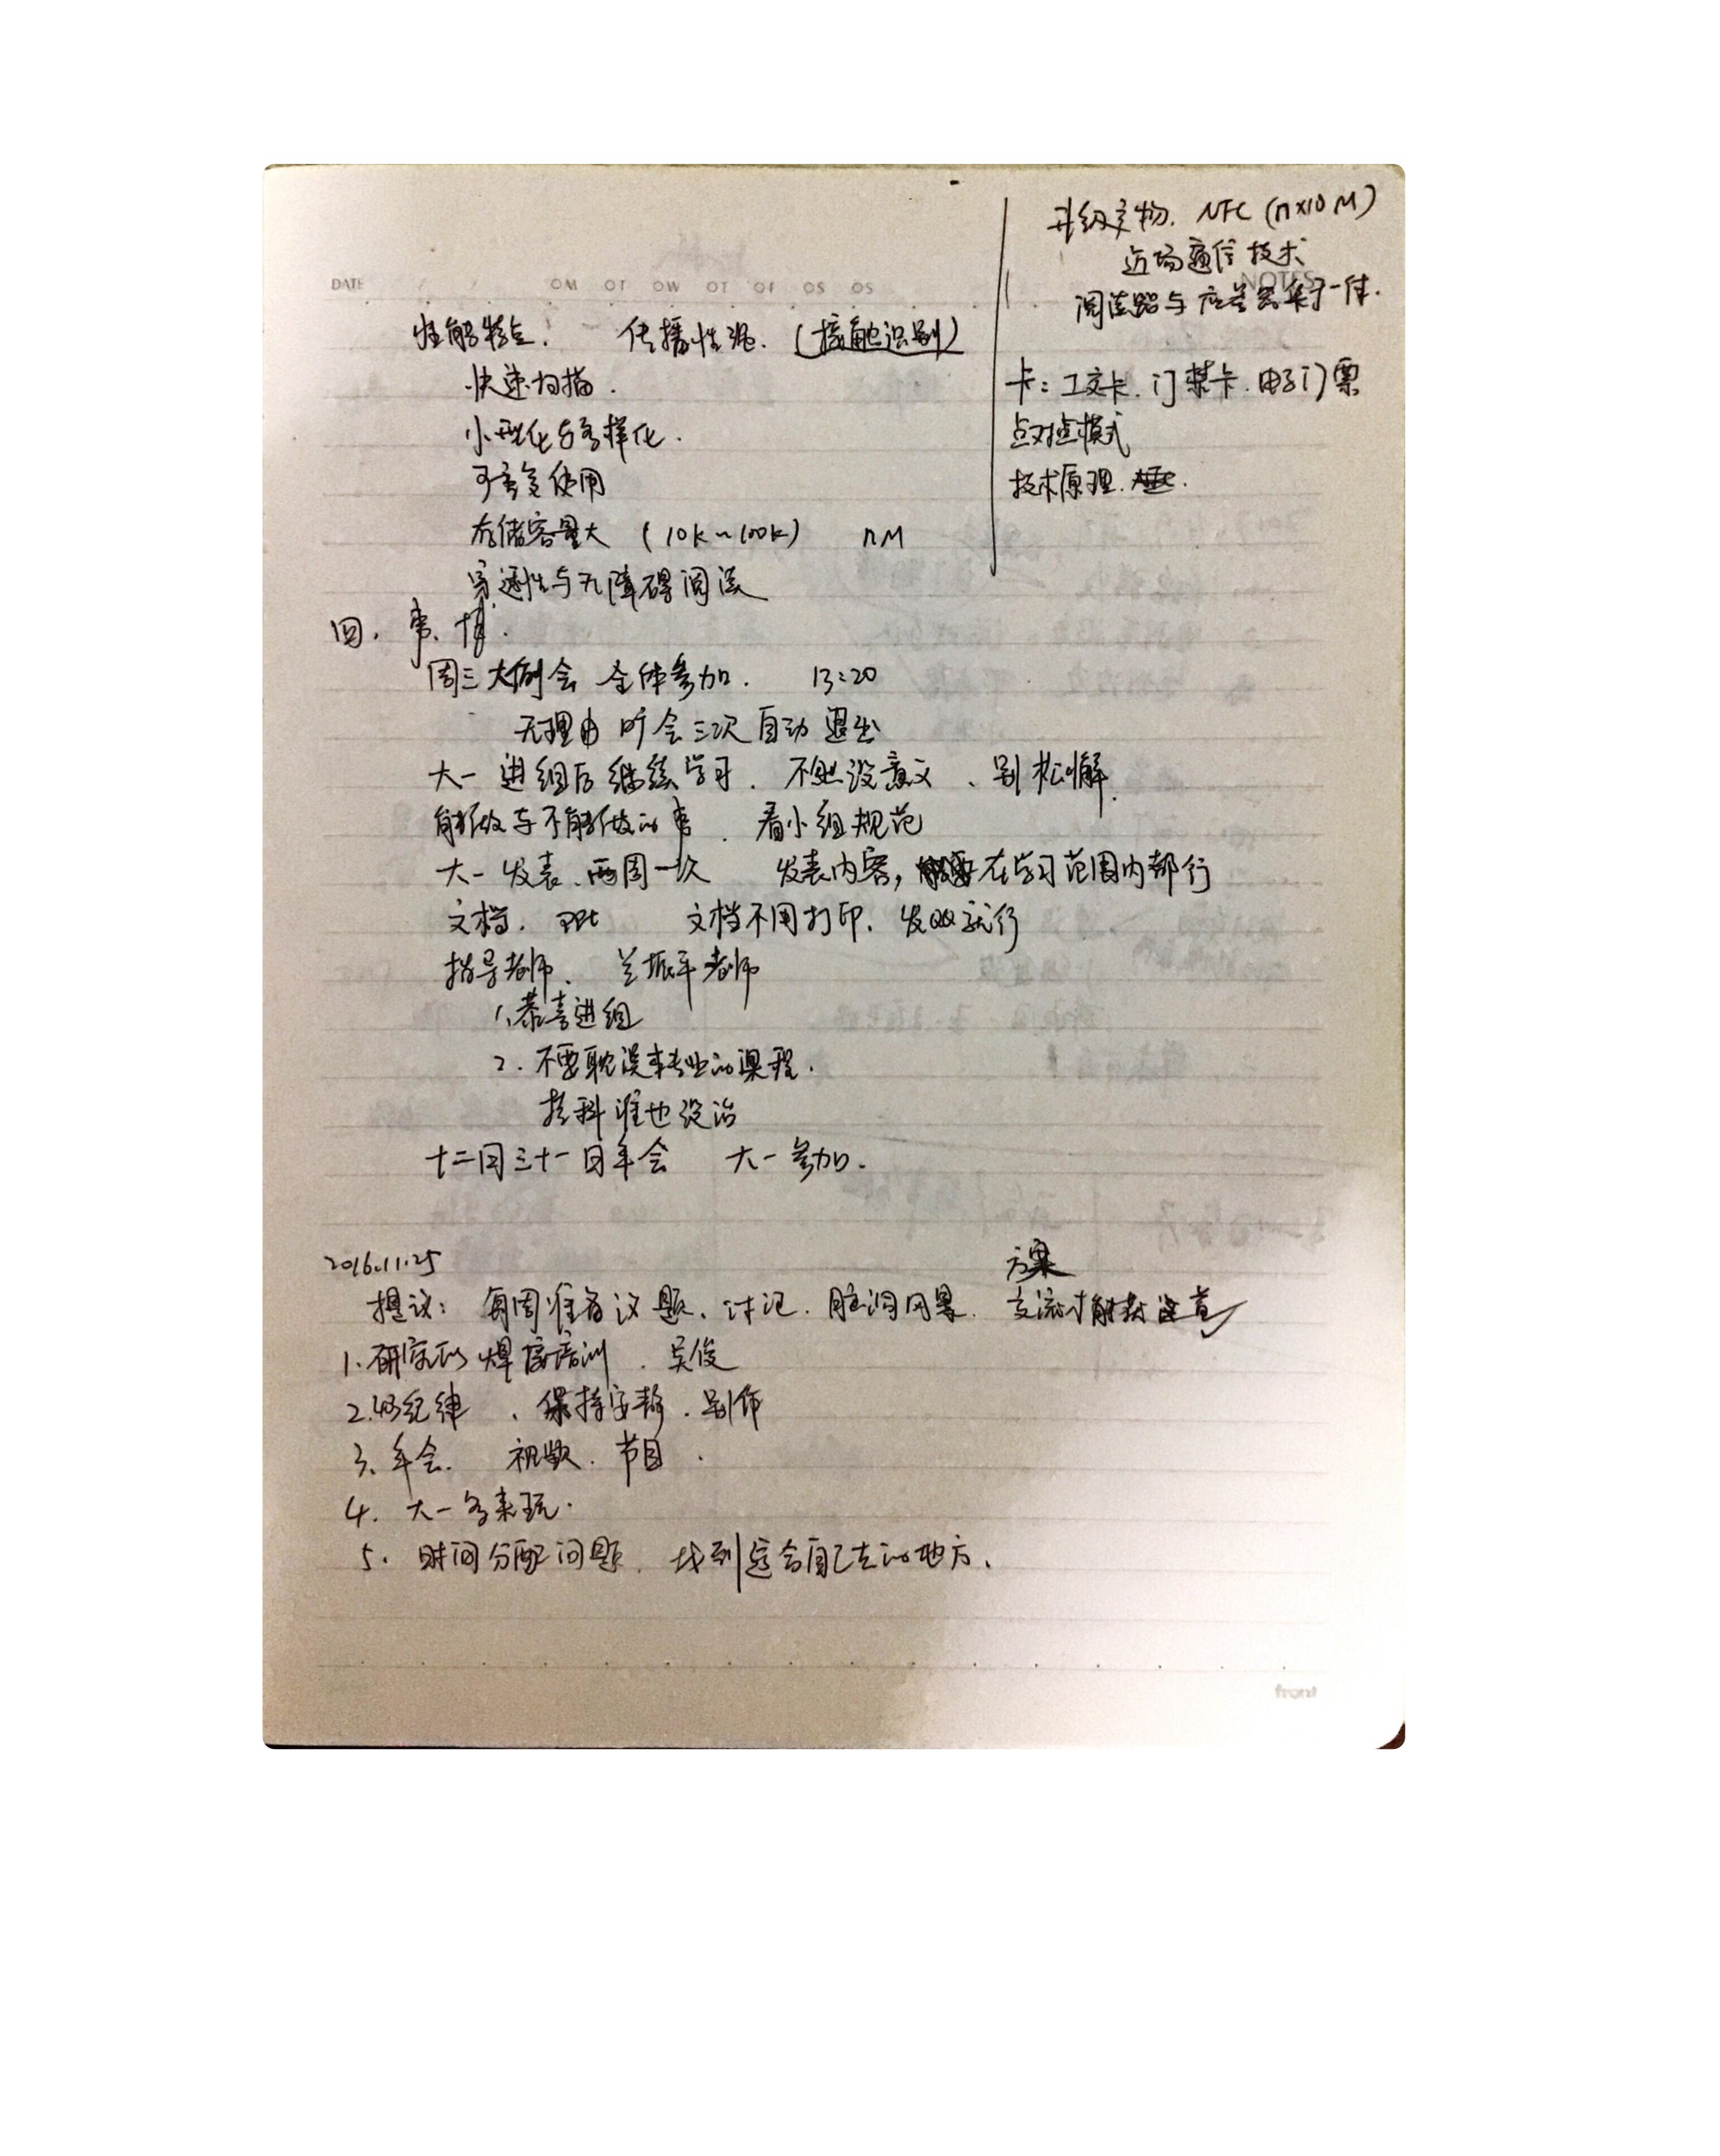 升级产物. NFC (n×10M)
近场通信技术
NOTES
阅读器与应答器集于一体.
卡: 公交卡. 门禁卡. 电子门票
点对点模式
技术原理.
DATE / / OM OT OW OT OF OS OS
性能特点. 传播性强. (接触识别)
快速扫描.
小型化与多样化.
可重复使用
存储容量大 (10k~100k) nM
穿透性与无障碍阅读
四. 事情.
周三大例会 全体参加. 13:20
无理由 旷会三次自动退出
大一 进组后继续学习. 不然没意义、别松懈.
能做与不能做的事. 看小组规范
大一发表、两周一次 发表内容, 在学习范围内都行
文档. PPt 文档不用打印. 发QQ就行
指导老师. 兰振平老师
1、恭喜进组
2. 不要耽误本专业的课程.
挂科谁也没治
十二月三十一日年会 大一参加.
2016.11.25
方案
提议: 每周准备议题、讨论. 脑洞风暴. 交流
1. 焊接培训. 吴俊
2. 纪律、保持安静.
3、年会. 视频. 节目.
4. 大一多来玩.
5. 时间分配问题. 找到适合自己去的地方.
front